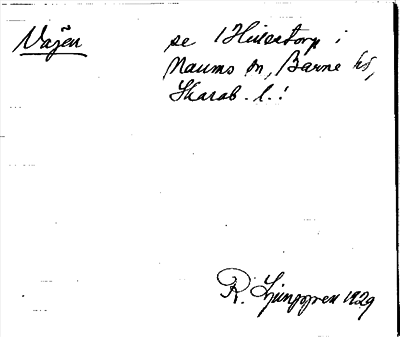 Vajen
se 1 Hülestorp i
Naums sn, Barne hd,
Skarab. l.!
R. Ljunggren 1929